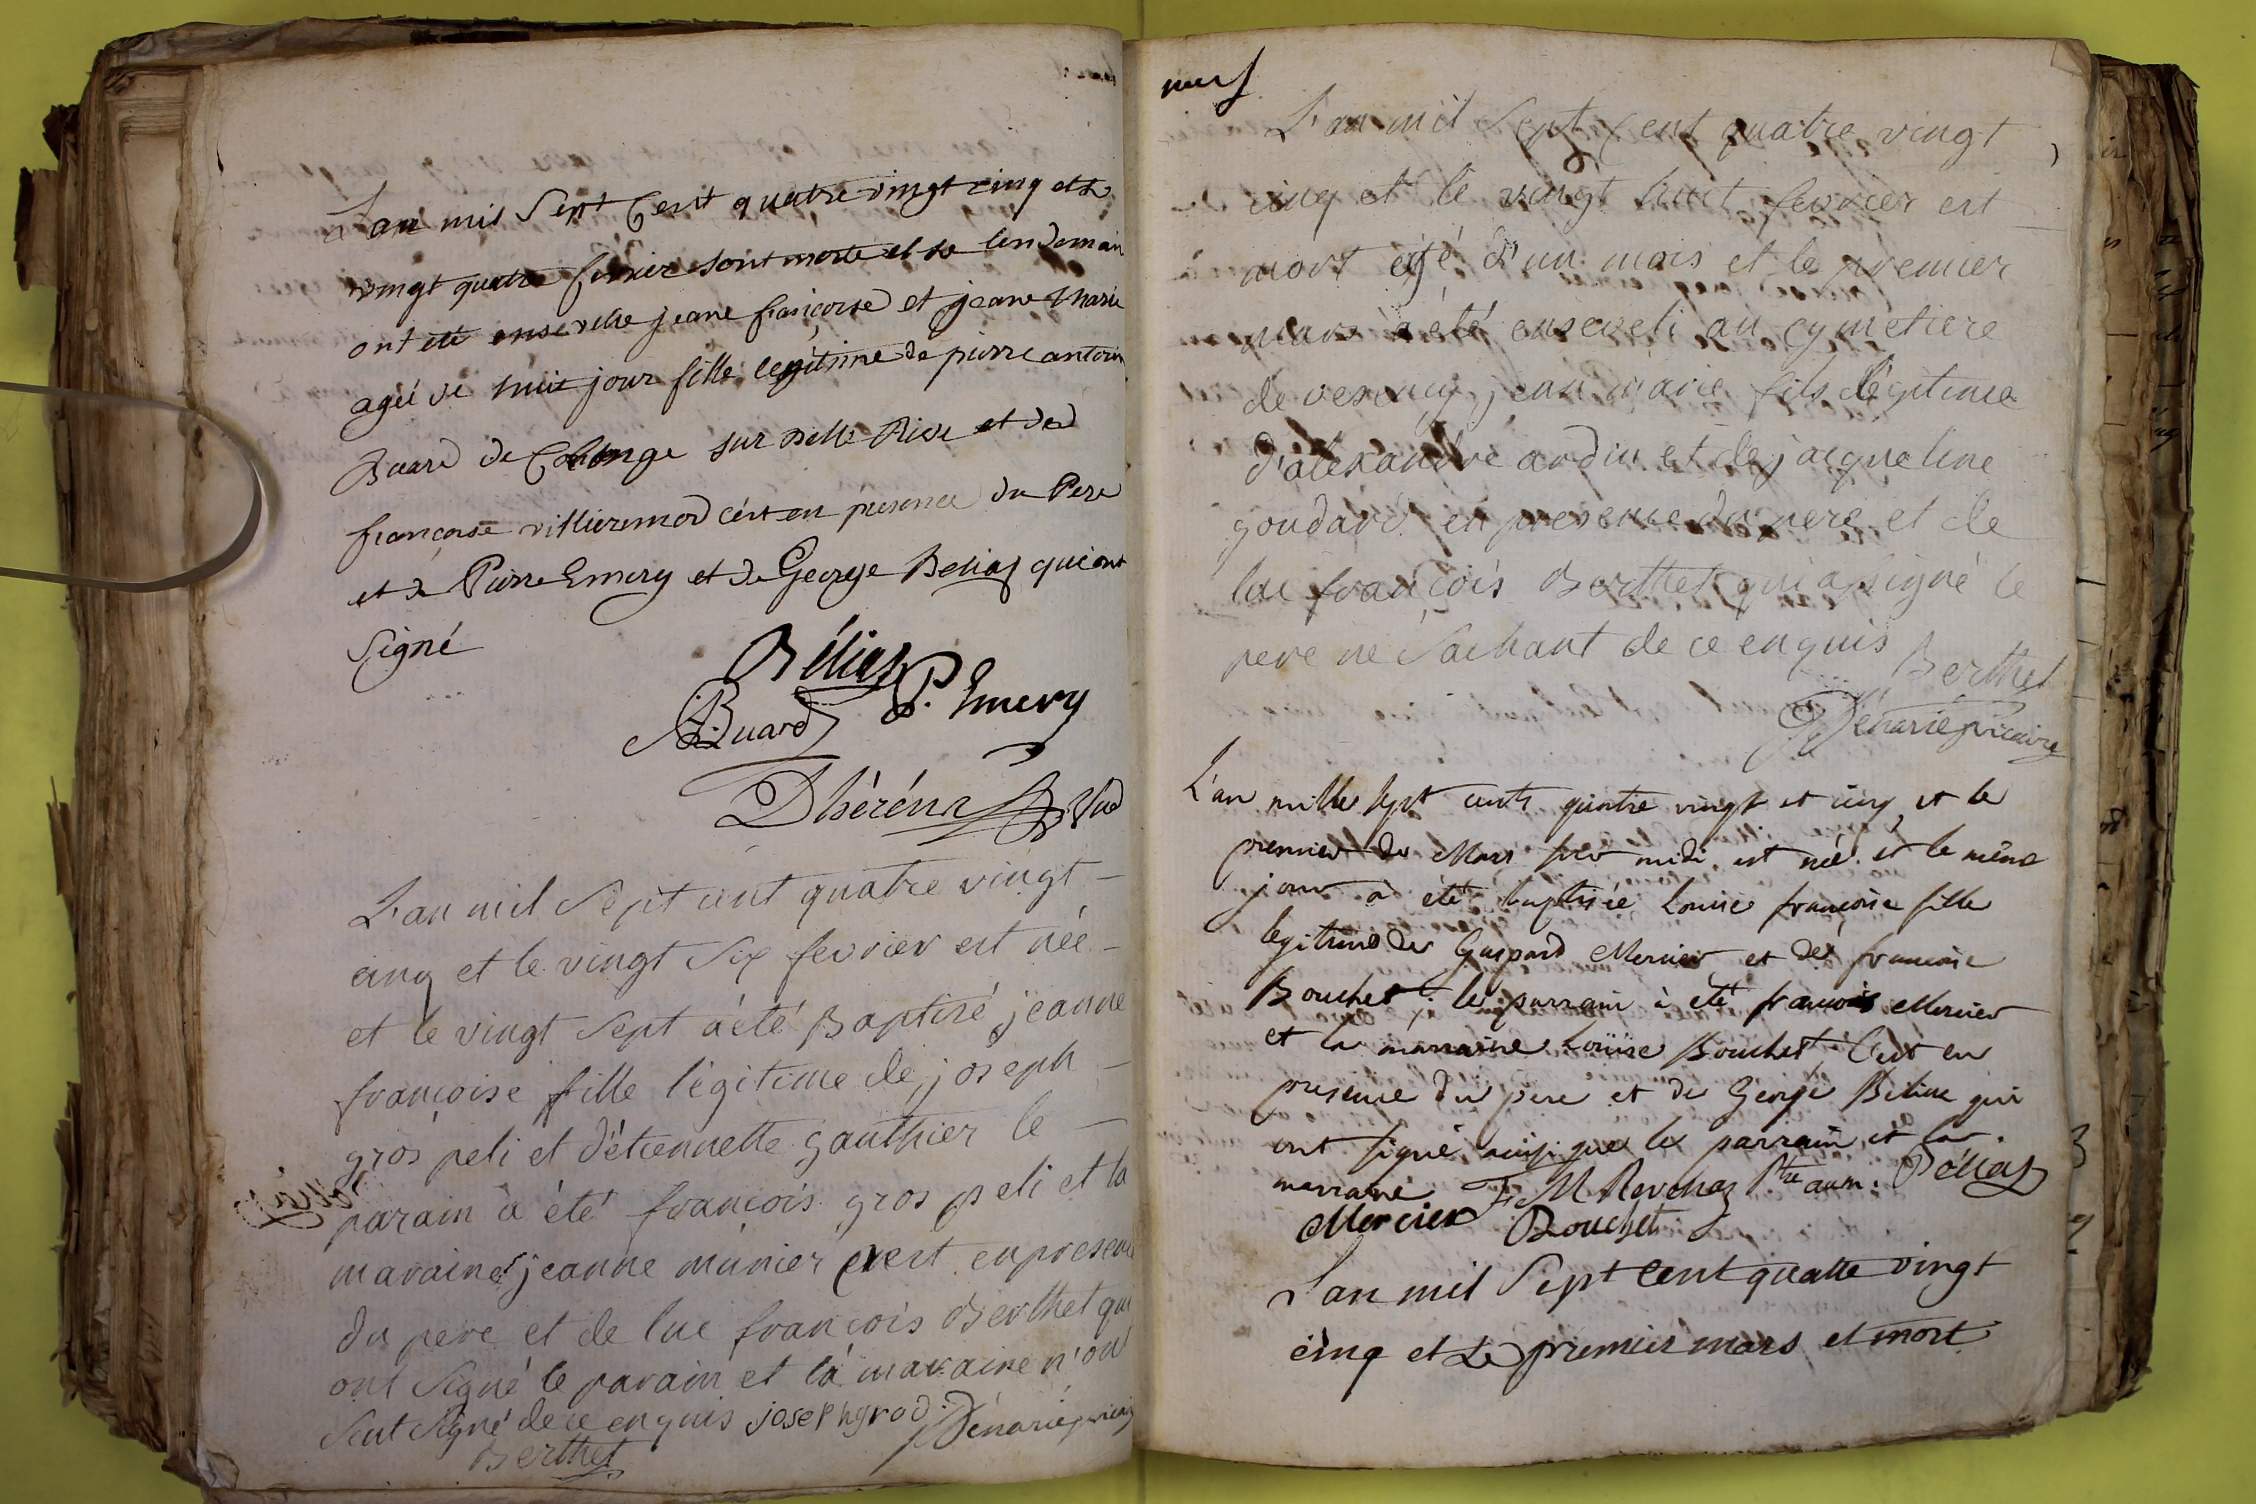 L'an mil Sept Cent quatre vingt cinq et le
vingt quatre fevrier sont morte et le lendemain
ont eté ensevelie jeane françoise et jeane Marie
ageé de huit jour fille legitime de pierre antoin
Buard de Colonge sur Belle Rive et de
françoise villiermod cest en presence du Pere
et de Pierre Emery et de George Belias qui ont
Signé
Bélias
P. Emery
Buard
Dhéréns
L'an mil Sept cent quatre vingt
cinq et le vingt Six fevrier est née
et le vingt Sept a été Baptisé jeanne
françoise fille légitime de joseph
gros peli et d'étiennette gauthier le
parain a été françois gros peli et la
maraine jeanne munier c'est en presence
du pere et de luc françois Berthet qui
ont Signé le parain et la maraine n'ont
Seut Signé de ce enquis joseph grod
Dénarié vicaire
Berthet
neuf
L'an mil Sept Cent quatre vingt
cinq et le vingt huit fevrier est
mort agé d'un mois et le premier
mars a été enseveli au cymetiere
de vesancy jean marie fils légitime
d'alexandre ardin et de jacqueline
goudard en presence du pere et de
luc françois Berthet qui a signé le
pere ne Sachant de ce enquis
Berthet
Dénarié vicaire
L'an mille sept cents quatre vingt et cinq et le
premier de Mars sur midi est née et le même
jour a été baptisée Louise françoise fille
legitime de Gaspard Mercier et de francoise
Bouchet. le parrain a été francois Mercier
et la marraine Louise Bouchet C'est en
presence du pere et de George Belias qui
ont signé ainsi que le parrain et la
marraine F. M Revchaz Ptre aum. Bélias
Mercier Bouchet
L'an mil Sept Cent quatre vingt
cinq et Le premier mars et mort